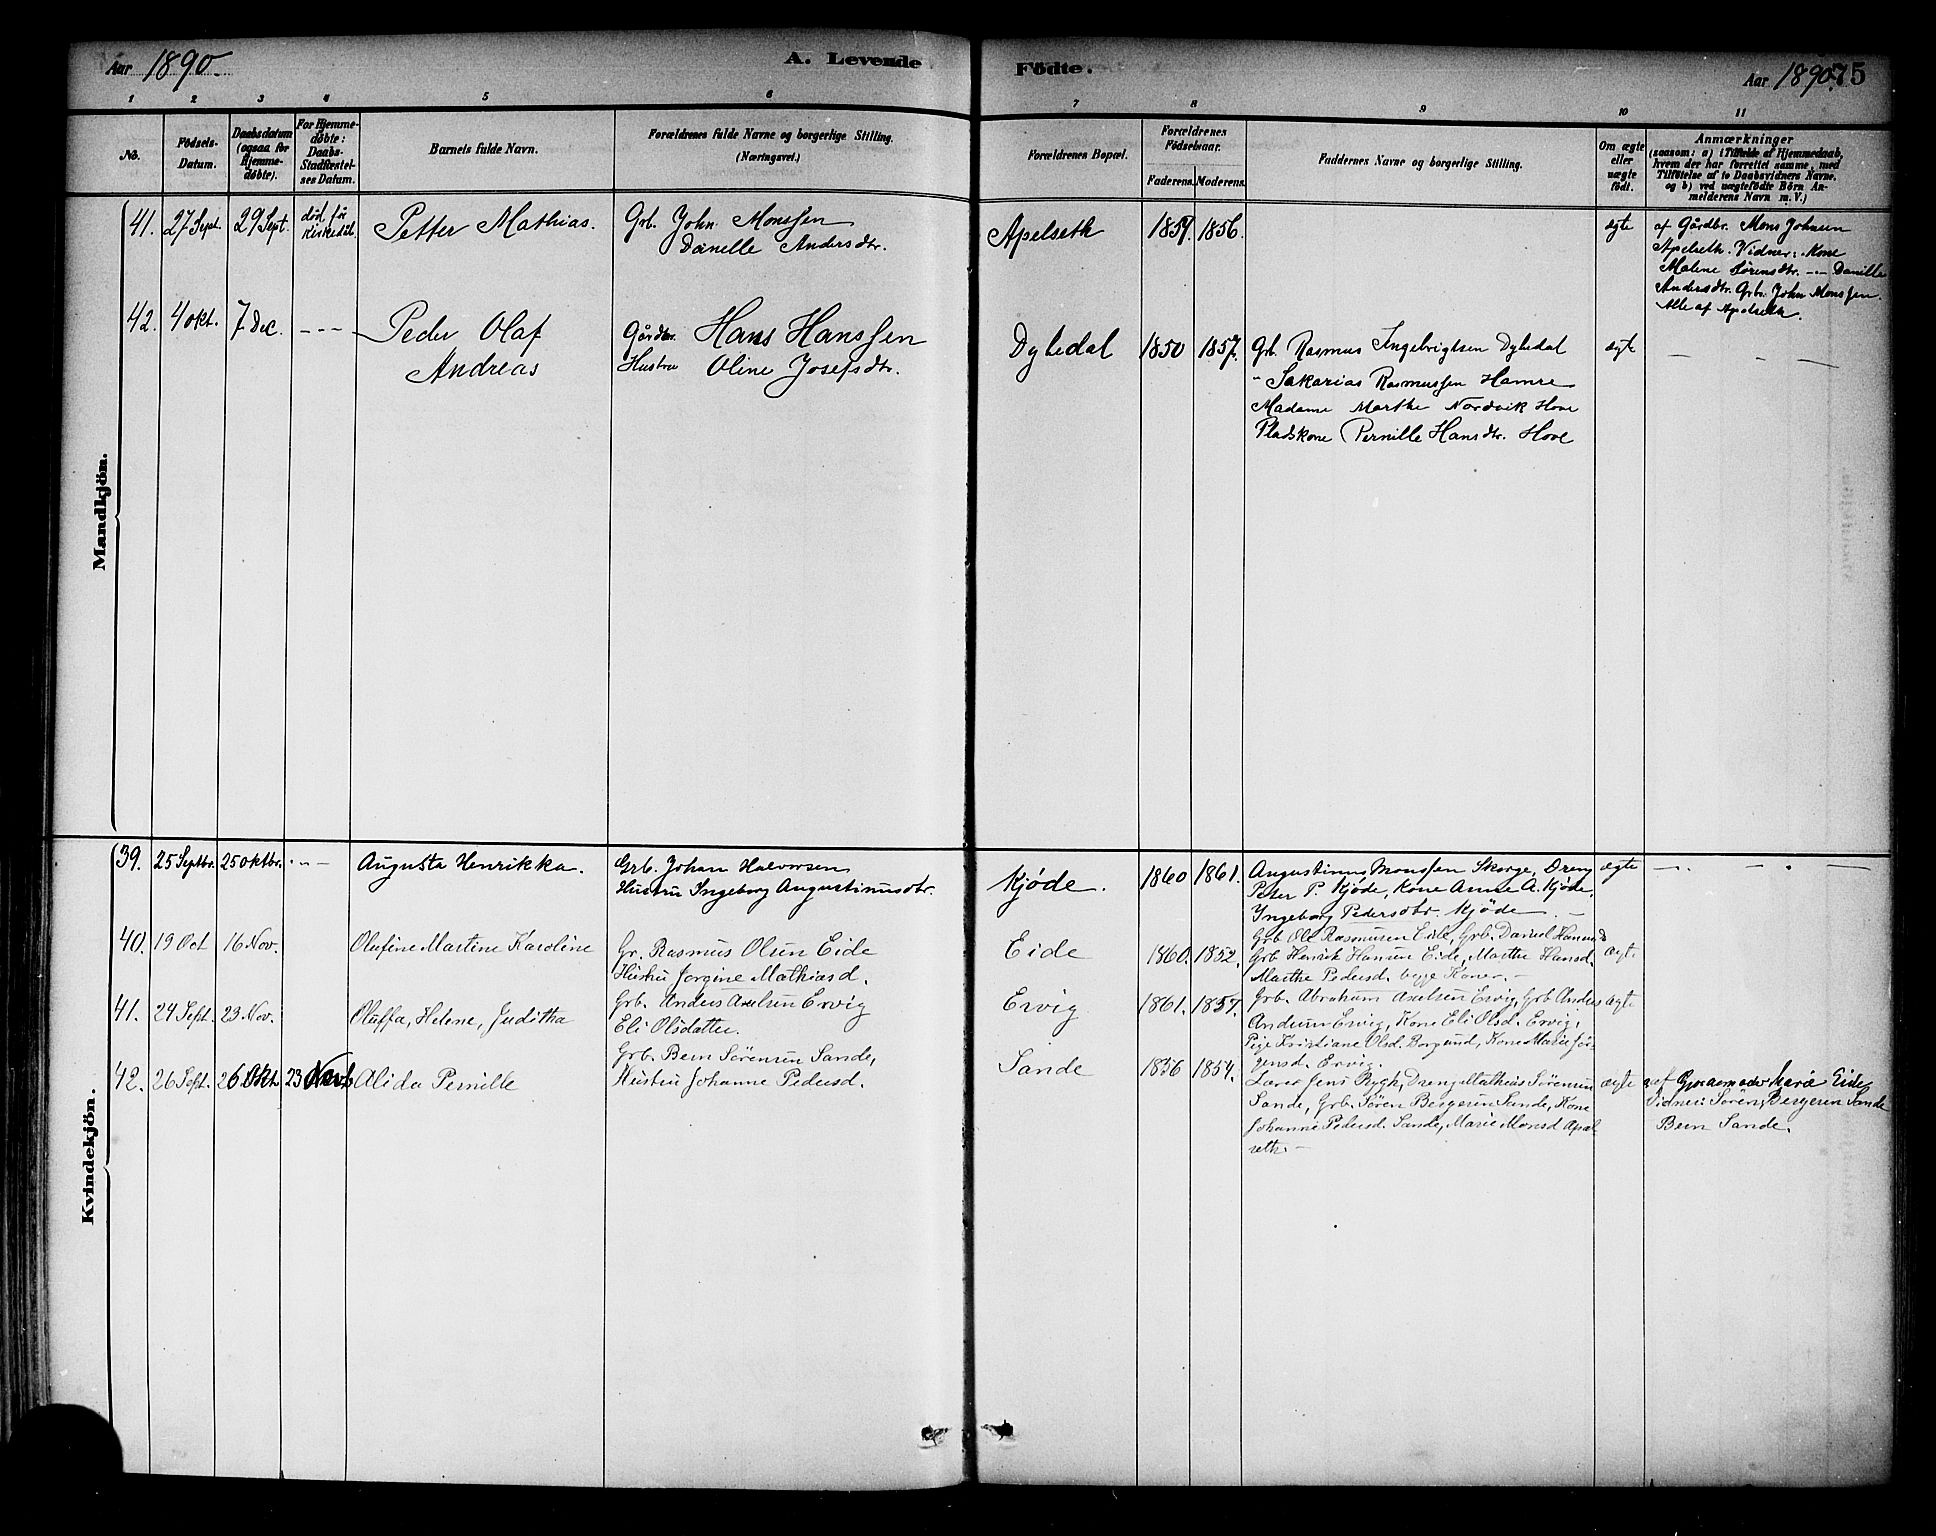 Aar 1890. A. Levende Födte. Aar 1890. 75
1 2 3 4 5 6 7 8 9 10 11
No.
Födsels-
Datum.
Daabsdatum
(ogsaa for
Hjemme-
døbte).
For Hjemme-
døbte:
Daabs-
Stadfæstel-
ses Datum.
Barnets fulde Navn.
Forældrenes fulde Navne og borgerlige Stilling.
(Næringsvei.)
Forældrenes Bopæl.
Forældrenes
Födselsaar.
Faderens. Moderens.
Faddernes Navne og borgerlige Stilling.
Om ægte
eller
uægte
födt.
Anmærkninger
(saasom: a) i Tilfælde af Hjemmedaab,
hvem der har forrettet samme, med
Tilföielse af to Daabsvidners Navne,
og b) ved uægtefödte Börn An-
melderens Navn m. V.)
Mandkjön.
41. 27 Sept. 29 Sept. død før
Petter Mathias.
Grb. John Monssen
Danelle Andersdtr.
Apelseth 1859. 1856.
ægte
af Gårdbr. Mons Johnsen
Apelseth. Vidner: Kone
Malene Sørensdtr. -- Danille
Andersdtr. Grb. John Monssen.
Alle af Apelseth.
42. 4 okt. 7 Dec. - - -
Peder Olaf
Andreas
Gårdbr. Hans Hanssen
Hustru Oline Josefsdtr.
Dyhedal 1850 1857.
Grb. Rasmus Ingebrigtsen Dyhedal
" Sakarias Rasmussen Hamre
Madame Marthe Nordvik Hove
Pladskone Pernille Hansdtr. Hove
ægte
— — —
Kvindekjön.
39. 25 Septbr. 25 oktbr. - - -
Augusta Henrikka.
Grb. Johan Halvorsen
Hustru Ingeborg Augustinusdtr.
Kjøde. 1860 1861.
Augustinus Monssen Skorge, Dreng
Peter P. Kjøde, Kone Anne A. Kjøde,
Ingeborg Pedersdtr. Kjøde. —
ægte
40. 19 Oct 16 Nov.
Olufine Martine Karoline
Gr. Rasmus Olsen Eide
Hustru Jorgine Mathiasd.
Eide 1860. 1852.
Grb. Ole Rasmusen Eide, Grb. Daniel
Grb. Henrik Hansen Eide, Marthe Hansd.
Marthe Pedersd. begge Koner. —
ægt.
41. 24 Sept. 23. Nov.
Oluffa, Helene, Juditha
Grb. Anders Axelsen Ervig
Eli Olsdatter.
Ervig 1861. 1857.
Grb. Abraham Axelsen Ervig, Grb Anders
Andersen Ervig, Kone Eli Olsd. Ervig,
Pige Kristiane Olsd. Borgund, Kone Marie Jør-
gensd. Ervig.
ægte
42. 26 Sept. 26 Okt 23 Novb
Alida Pernille
Grb. Bern Sørensen Sande,
Hustru Johanne Pedersd.
Sande 1856 1854.
Lærer Jens Rygh, Dreng Mathias Sørensen
Sande, Grb. Søren Bergesen Sande, Kone
Johanne Pedersd. Sande, Marie Monsd Apal-
seth. —
ægte
af Gjordmoder Marie Eide
Vidner: Søren Bergesen Sande
Bern Sande.